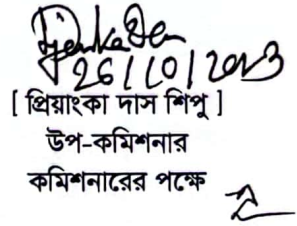 26/10/2023
[ প্রিয়াংকা দাস শিপু ]
উপ-কমিশনার
কমিশনারের পক্ষে